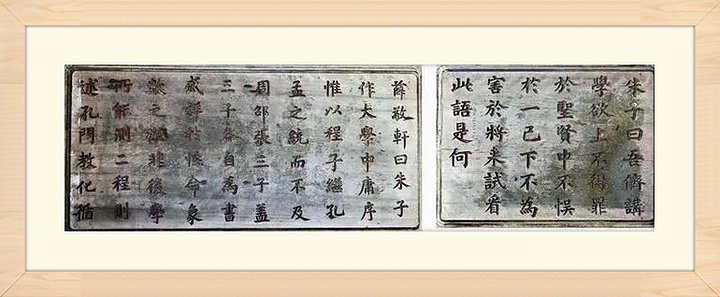 朱子曰吾儕講
學欲上不得罪
於聖賢中不悞
於一己下不為
害於將来試看
此語是何
薛敬軒曰朱子
作大學中庸序
惟以程子繼孔
孟之統而不及
周邵張三子蓋
三子各自為書
詳於性命象
數之微非後學
所能測二程則
述孔門教化循